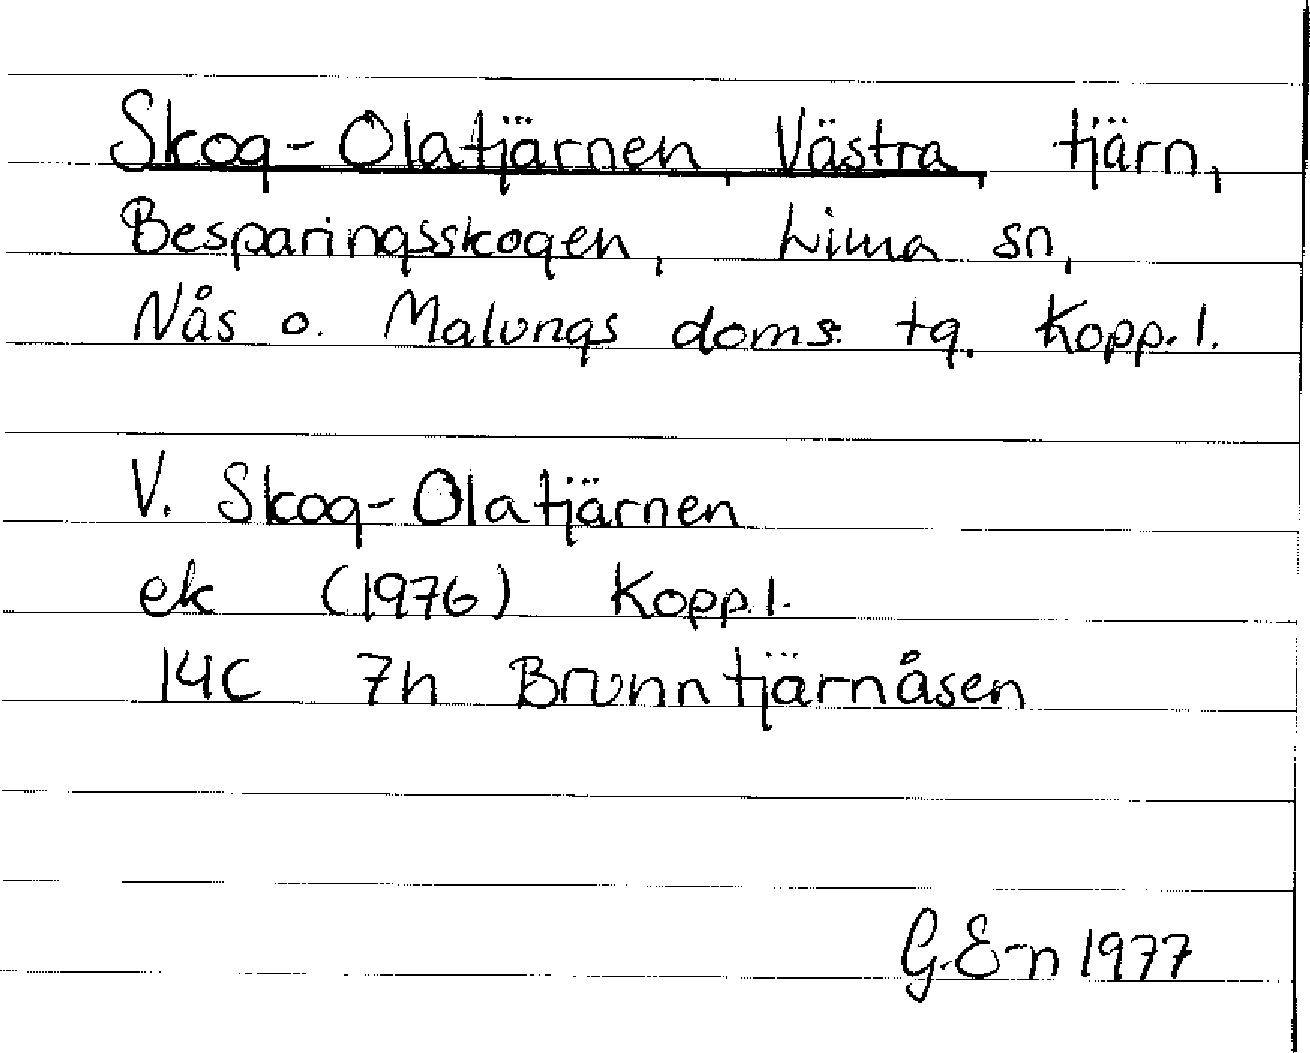 Skog-Olatjärnen, Västra, tjärn,
Besparingsskogen, Lima sn,
Nås o. Malungs doms. tg. Kopp. l.
V. Skog-Olatjärnen
ek (1976) Kopp. l.
14C 7h Brunntjärnåsen
G. E-n 1977